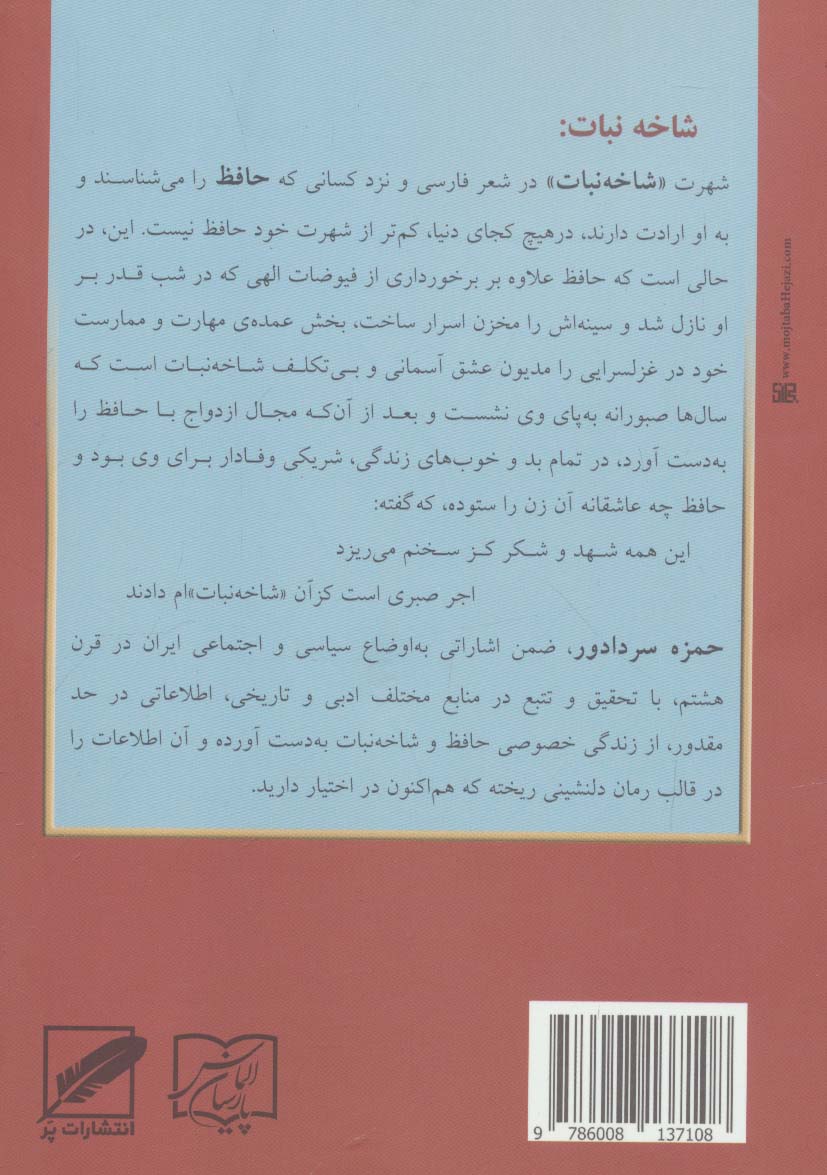 شاخه نبات:
شهرت «شاخه‌نبات» در شعر فارسی و نزد کسانی که حافظ را می‌شناسند و
به او ارادت دارند، درهیچ کجای دنیا، کم‌تر از شهرت خود حافظ نیست. این، در
حالی است که حافظ علاوه بر برخورداری از فیوضات الهی که در شب قدر بر
او نازل شد و سینه‌اش را مخزن اسرار ساخت، بخش عمده‌ی مهارت و ممارست
خود در غزلسرایی را مدیون عشق آسمانی و بی‌تکلف شاخه‌نبات است که
سال‌ها صبورانه به‌پای وی نشست و بعد از آن‌که مجال ازدواج با حافظ را
به‌دست آورد، در تمام بد و خوب‌های زندگی، شریکی وفادار برای وی بود و
حافظ چه عاشقانه آن زن را ستوده، که‌گفته:
این همه شهد و شکر کز سخنم می‌ریزد
اجر صبری است کزآن «شاخه‌نبات»ام دادند
حمزه سردادور، ضمن اشاراتی به‌اوضاع سیاسی و اجتماعی ایران در قرن
هشتم، با تحقیق و تتبع در منابع مختلف ادبی و تاریخی، اطلاعاتی در حد
مقدور، از زندگی خصوصی حافظ و شاخه‌نبات به‌دست آورده و آن اطلاعات را
در قالب رمان دلنشینی ریخته که هم‌اکنون در اختیار دارید.
www.mojtabaHejazi.com
انتشارات پَر
الماس
پارسیان
9 786008 137108